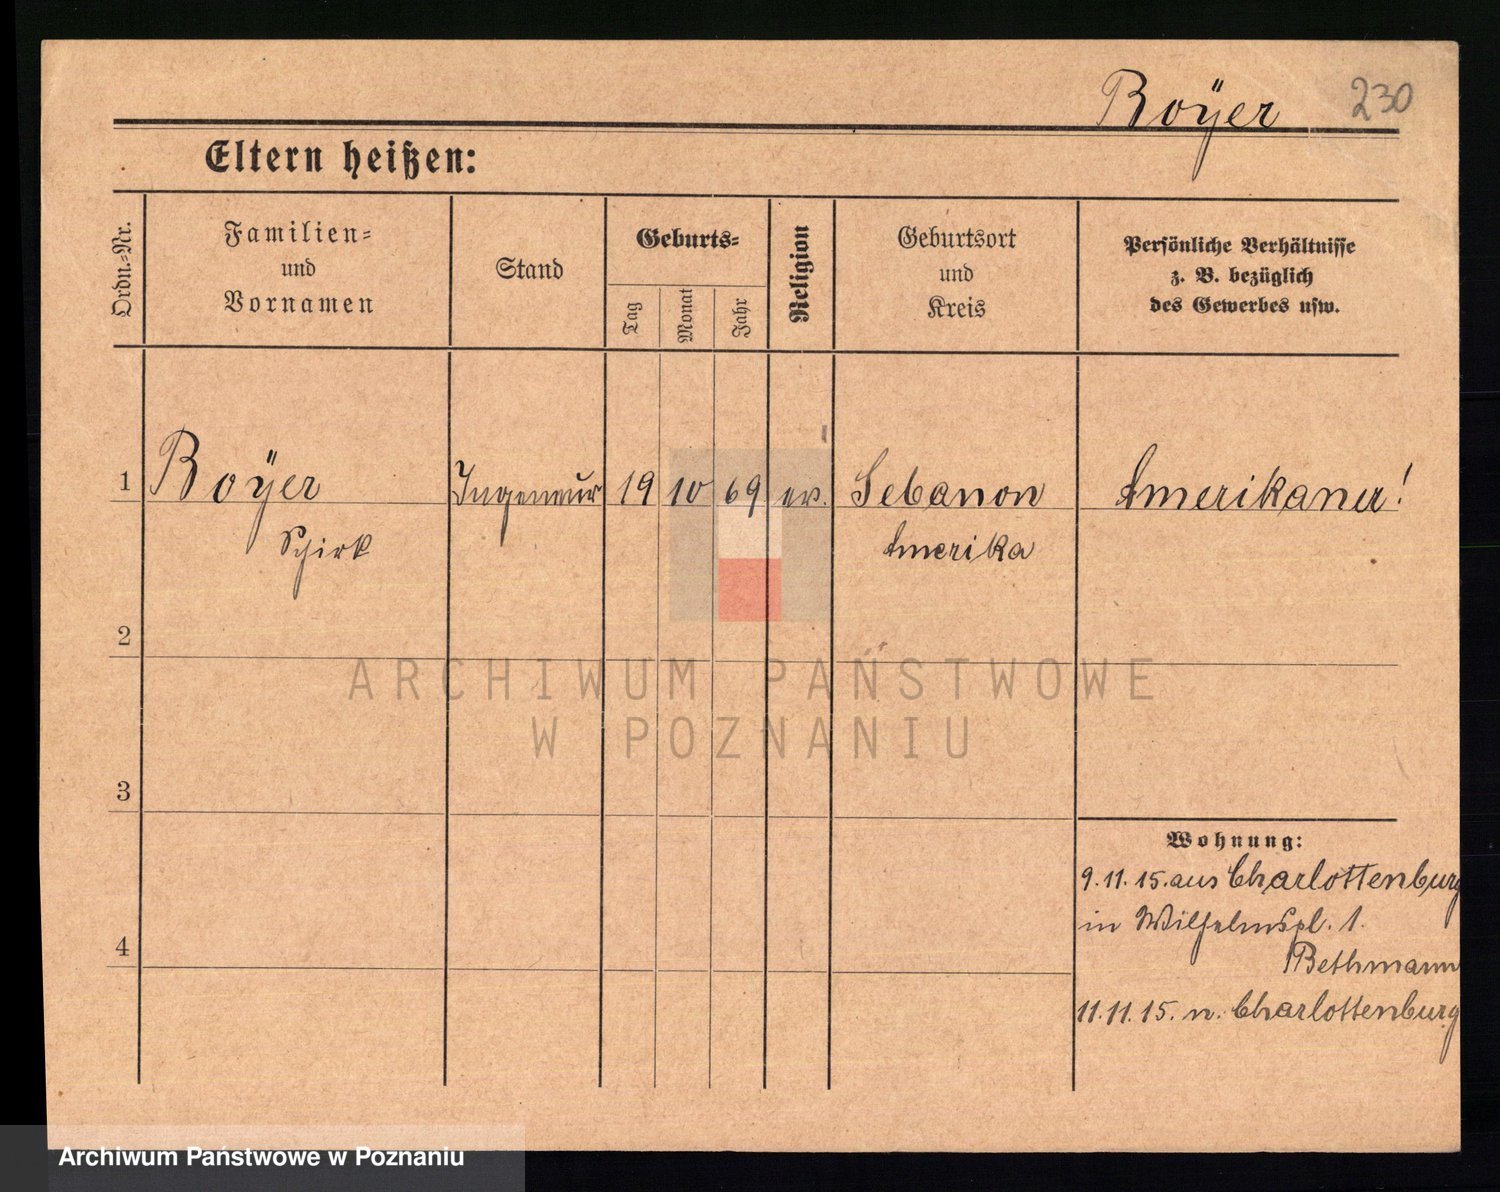 Boÿer 230
Eltern heißen:
Ordn.-Nr.
Familien-
und
Vornamen
Stand
Geburts-
Tag
Monat
Jahr
Religion
Geburtsort
und
Kreis
Persönliche Verhältnisse
z. B. bezüglich
des Gewerbes usw.
1 Boÿer Ingenieur 19 10 69 ev. Lebanon Amerikaner!
Amerika
2
3
4
Wohnung:
9.11.15. aus Charlottenburg
in Wilhelmspl. 1.
Bethmann
11.11.15. n. Charlottenburg
ARCHIWUM PAŃSTWOWE
W POZNANIU
Archiwum Państwowe w Poznaniu